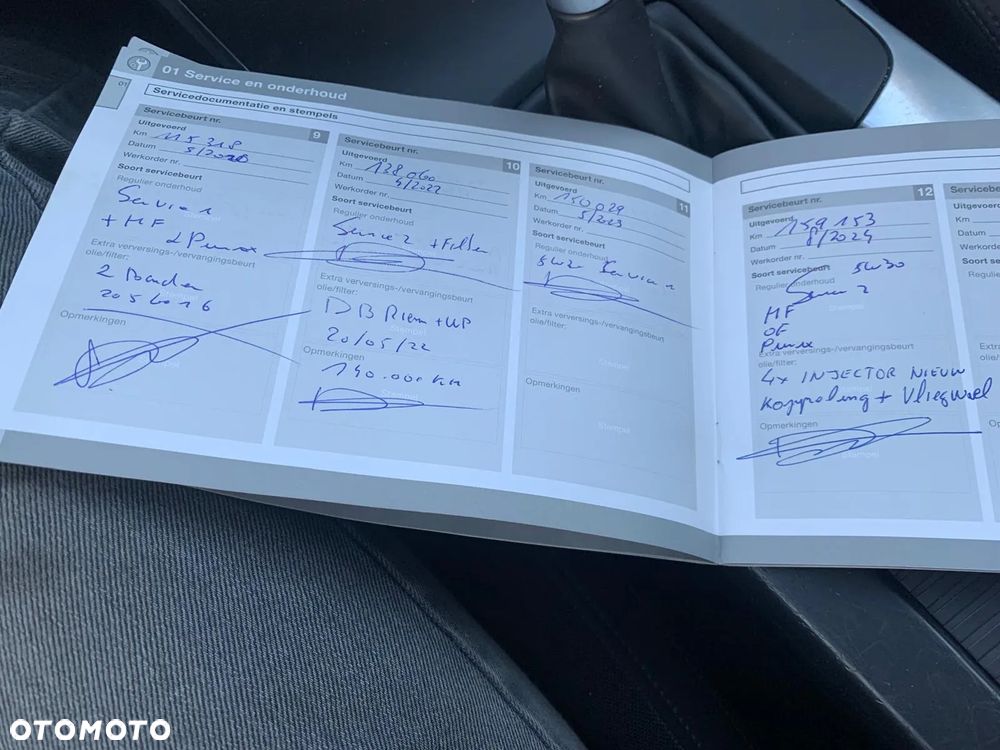 01 Service en onderhoud
01
Servicedocumentatie en stempels
Servicebeurt nr. 9
Uitgevoerd
Km 115 318
Datum 5/2020
Werkorder nr.
Soort servicebeurt
Regulier onderhoud
Service 1
+ HF
Extra verversings-/vervangingsbeurt
olie/filter:
2 Banden
205 60 16
Opmerkingen
Servicebeurt nr. 10
Uitgevoerd
Km 128 060
Datum 4/2022
Werkorder nr.
Soort servicebeurt
Regulier onderhoud
Service 2 + Filter
Extra verversings-/vervangingsbeurt
olie/filter:
DB Riem + WP
20/05/22
Opmerkingen
140.000 km
Servicebeurt nr. 11
Uitgevoerd
Km 150 029
Datum 5/2023
Werkorder nr.
Soort servicebeurt
Regulier onderhoud
5W30 Service 1
Extra verversings-/vervangingsbeurt
olie/filter:
Stempel
Opmerkingen
Stempel
Servicebeurt nr. 12
Uitgevoerd
Km 159 153
Datum 8/2024
Werkorder nr.
Soort servicebeurt 5W30
Regulier onderhoud
Service 2
HF
OF
Extra verversings-/vervangingsbeurt
olie/filter:
4x INJECTOR NIEUW
Koppeling + Vliegwiel
Opmerkingen
Stempel
Servicebeurt
Uitgevoerd
Km
Datum
Werkorder
Soort
OTOMOTO